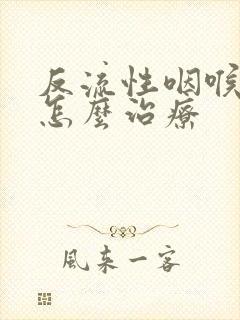 反流性咽喉
怎麼治療
風来一客